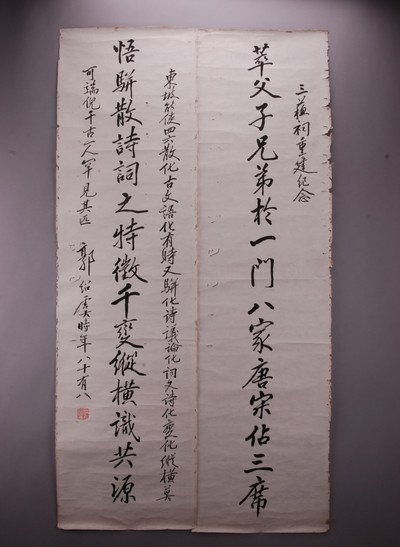 三蘇祠重建纪念
萃父子兄弟於一門八家唐宋佔三席
悟駢散詩詞之特徵千變縱横識共源
東坡能使四六散化古文語化有時又駢化诗議論化詞又诗化变化縱横莫
可端倪千古一人罕見其匹
郭绍虞時年八十有八